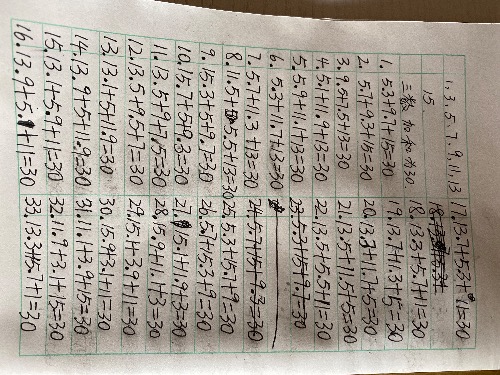 1.3.5.7.9.11.13
15
三数加和为30
1. 5.3+9.7+15=30
2. 5.1+15=30
3. 9.5+7.5+13=30
4. 5.1+11.9+13=30
5. 5.9+11.1+13=30
6. 5.3+11.7+13=30
7. 5.7+11.3+13=30
8. 11.5+5.5+13=30
9. 15.3+5+9.7=30
10. 15.7+5+9.3=30
11. 13.5+9+7.5=30
12. 13.5+9.5+7=30
13. 13.1+15+1.9=30
14. 13.9+5+11.9=30
15. 13.1+5.9+11=30
16. 13.9+5.1+11=30
17. 13.7+5.3+11=30
18. 13.3+5.7+11=30
19. 13.7+1.3+15=30
20. 13.3+11.7+5=30
21. 13.5+11.5+5=30
22. 13.5+5.5+11=30
23. 5.3+15+9.7=30
24. 5.7+15+9.3=30
25. 5.3+15
26. 5.7+15.3+9=30
27. +13=30
28. 15.9+11.1+3=30
29. 15.1+3.9+11=30
30. 15.9+3.1+11=30
31. 11.1+3.9+15=30
32. 11.9+3.1+15=30
33. 13.3+15.7+1=30